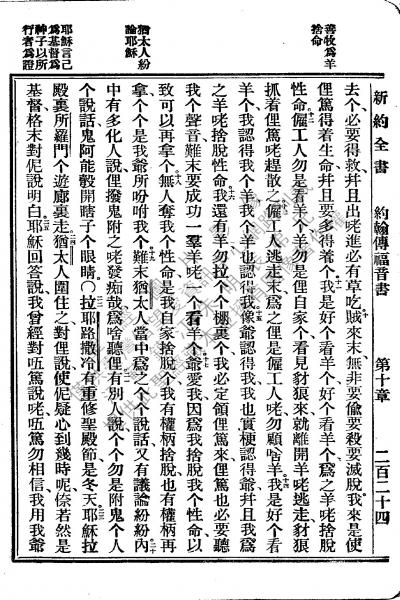 新約全書　約翰傳福音書　第十章　二百二十四
善牧爲羊
捨命
猶太人紛
論耶穌
耶穌言己
爲基督爲
神子以所
行者爲證
去個必要得救井且出咾進必有草吃賊來末無非要偷要殺要滅脫我來是使
俚篤得着生命井且要多得着個我是好個看羊個好個看羊個爲之羊咾捨脫
性命僱工人勿是看羊個羊勿是俚自家個看見豺狼來就離開羊咾逃走豺狼
抓着俚篤咾趕散之僱工人逃走末爲之俚是僱工人咾勿顧啥羊我是好個看
羊個我認得我個羊我個羊也認得我像爺認得我我也實梗認得爺井且我爲
之羊咾捨脫性命我還有羊勿拉個個棚裏個我必定領俚篤來俚篤也必要聽
我個聲音難末要成功一羣羊咾一個看羊個爺愛我因爲我捨脫我個性命以
致可以再拿個無人奪我個性命是我自家捨脫個我有權柄捨脫也有權柄再
拿個個個是我爺所吩咐我個難末猶太人當中爲之兀個說話又有議論紛紛內
中有多化人說俚撥鬼附之咾發痴哉爲啥聽俚有別人說個個勿是附鬼個人
個說話鬼阿能彀開瞎子個眼睛〇拉耶路撒冷有重修聖殿節是冬天耶穌拉
殿裏所羅門個遊廊裏走猶太人圍住之對俚說使伲疑心到幾時呢倷若然是
基督格末對伲說明白耶穌回答說我曾經對㑚篤說咾㑚篤勿相信我用我爺